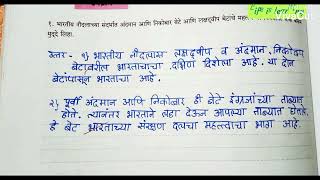 १. भारतीय नौदलाच्या संदर्भात अंदमान आणि निकोबार बेटे आणि लक्षद्वीप बेटांचे
मुद्दे लिहा.
उत्तर - १) भारतीय नौदलास लक्षद्वीप व अंदमान, निकोबार
बेटांवरील भारताच्या दक्षिण दिशेला आहे. या दोन
बेटांपासून भारताचा आहे.
२) पूर्वी अंदमान आणि निकोबार ही बेटे इंग्रजांच्या ताब्यात
होते. त्यानंतर भारताने लढा देऊन आपल्या ताब्यात घेतले.
हे बेट भारताच्या संरक्षण महत्त्वाचा भाग आहे.